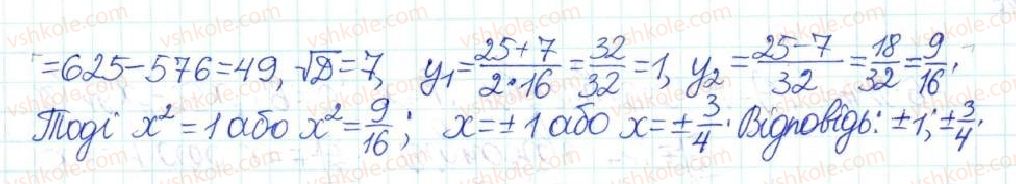 = 625 − 576 = 49, √D = 7, y₁ = (25 + 7)/(2 · 16) = 32/32 = 1, y₂ = (25 − 7)/32 = 18/32 = 9/16.
Тоді x² = 1 або x² = 9/16; x = ± 1 або x = ± 3/4. Відповідь: ± 1; ± 3/4.